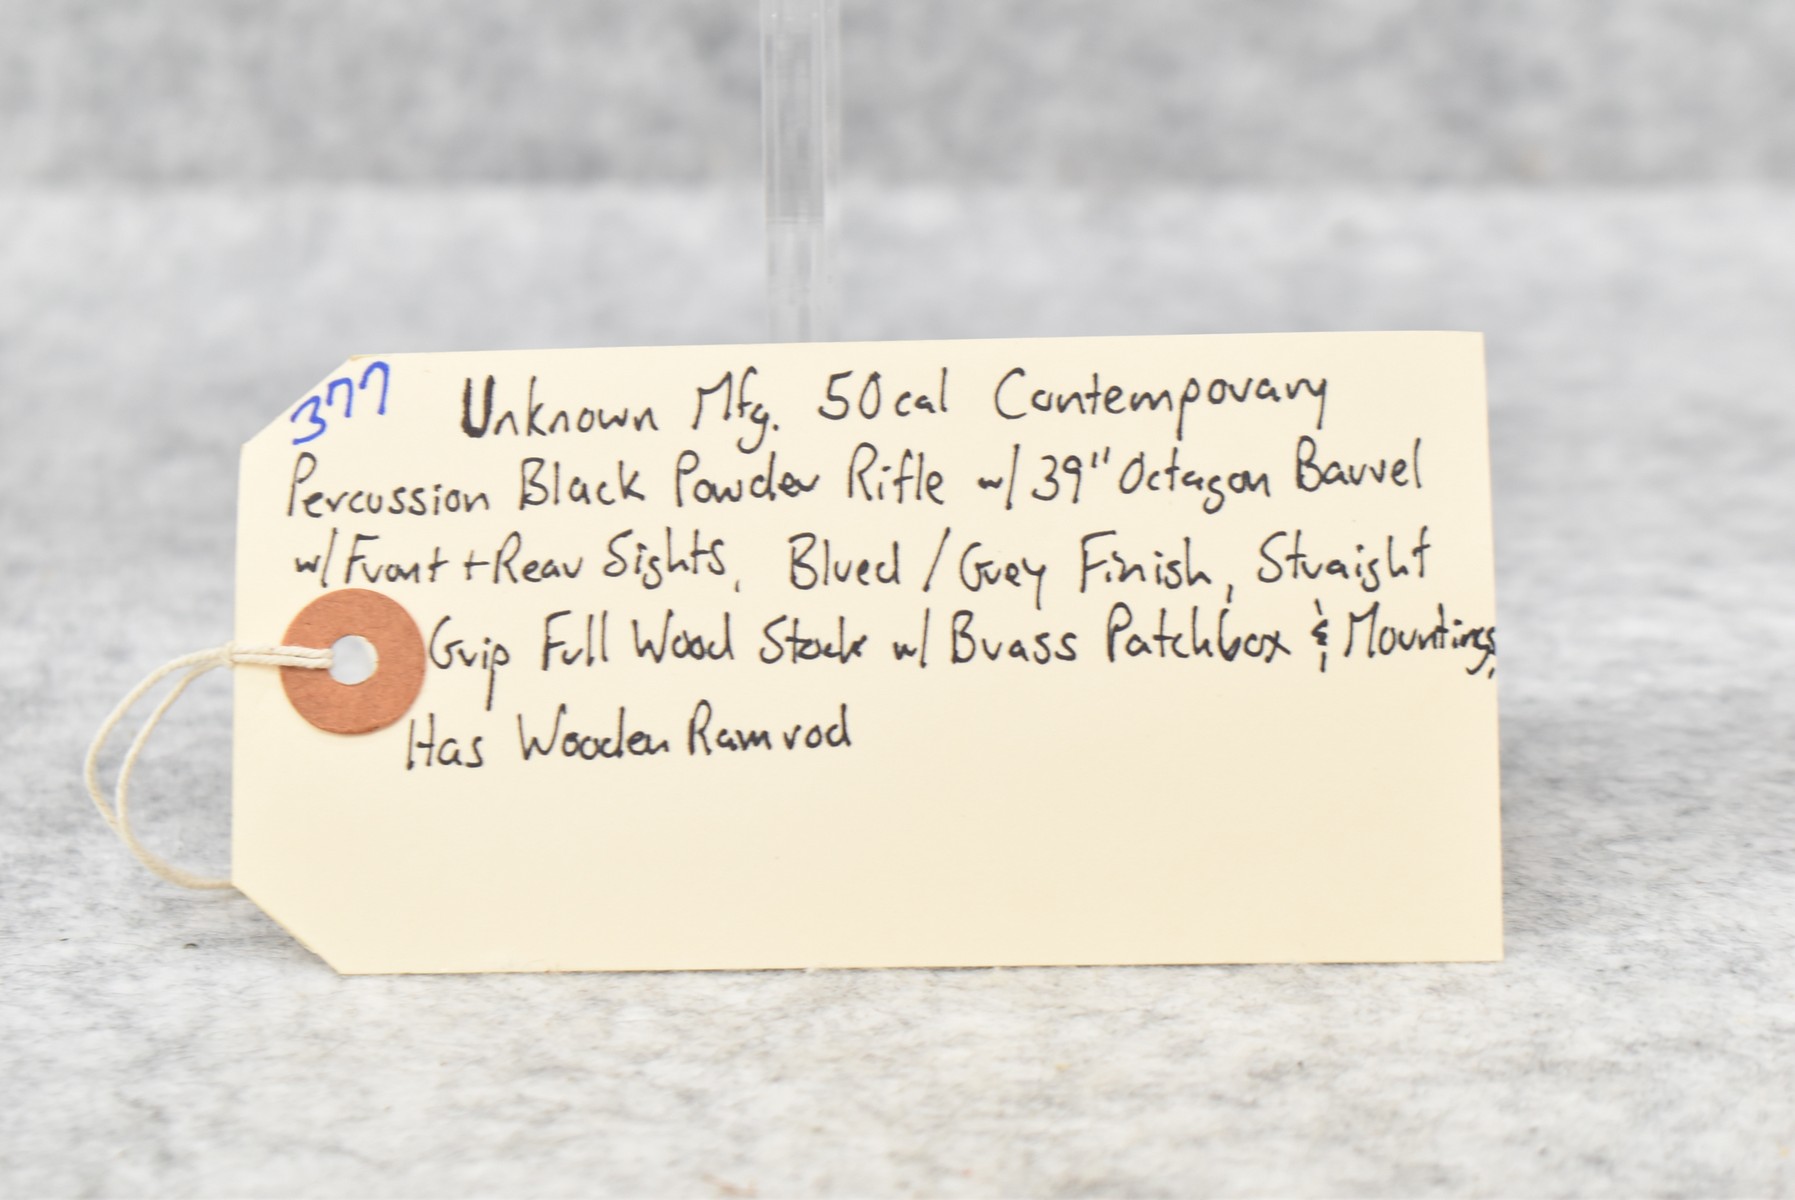 377 Unknown Mfg. 50cal Contemporary
Percussion Black Powder Rifle w/ 39" Octagon Barrel
w/ Front + Rear Sights, Blued / Grey Finish, Straight
Grip Full Wood Stock w/ Brass Patchbox & Mountings,
Has Wooden Ramrod